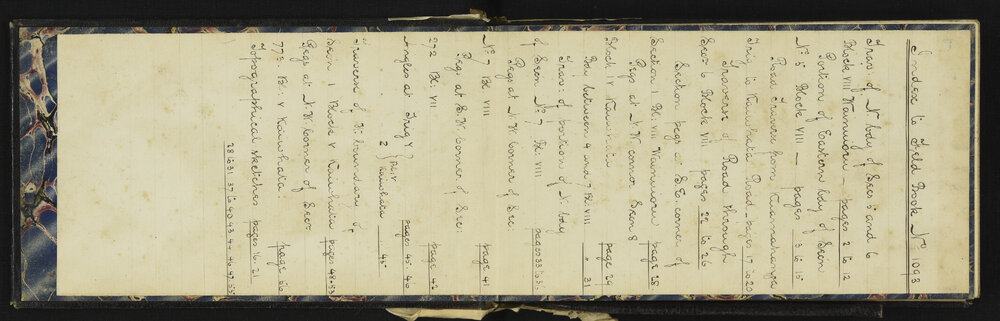 Index to Field Book No 1093
Trav: of N body of Secs 5 and 6
Block VIII Wainuioru — pages 2 to 12
Portion of Eastern body of Secn
No 5 Block VIII — pages 3 to 15
Road Traverse from
Trig to Kaiwhata Road – pages 17 to 20
Traverse of Road through
Secn 6 Block VIII pages 22 to 26
Section pegs at S.E. corner of
Section 1 Bk. VII Wainuioru page 28
Pegs at N.W. corner Secn 8
Block IV Kaiwhata page 29
Bdy between 4 and 7 Bk. VIII " 31
Trav: of portion of N. body
of Secn No 7 Bk VIII pages 33 to
Pegs at N.W. corner of Sec.
No 7 Bk VIII page 41
Pegs at S.W. corner of Sec.
272 Bk. VII page 42
Angles at Trig Y pages 45 46
Z } Bk. V Kaiwhata 45
Traverse of N: boundary of
Secn 1 Block V Kaiwhata pages 48-53
Pegs at N.W. corner of Secn
773. Bk. V Kaiwhata. page 56
Topographical sketches pages 16. 21
28 to 31 37 to 40 43 44 46 47. 55